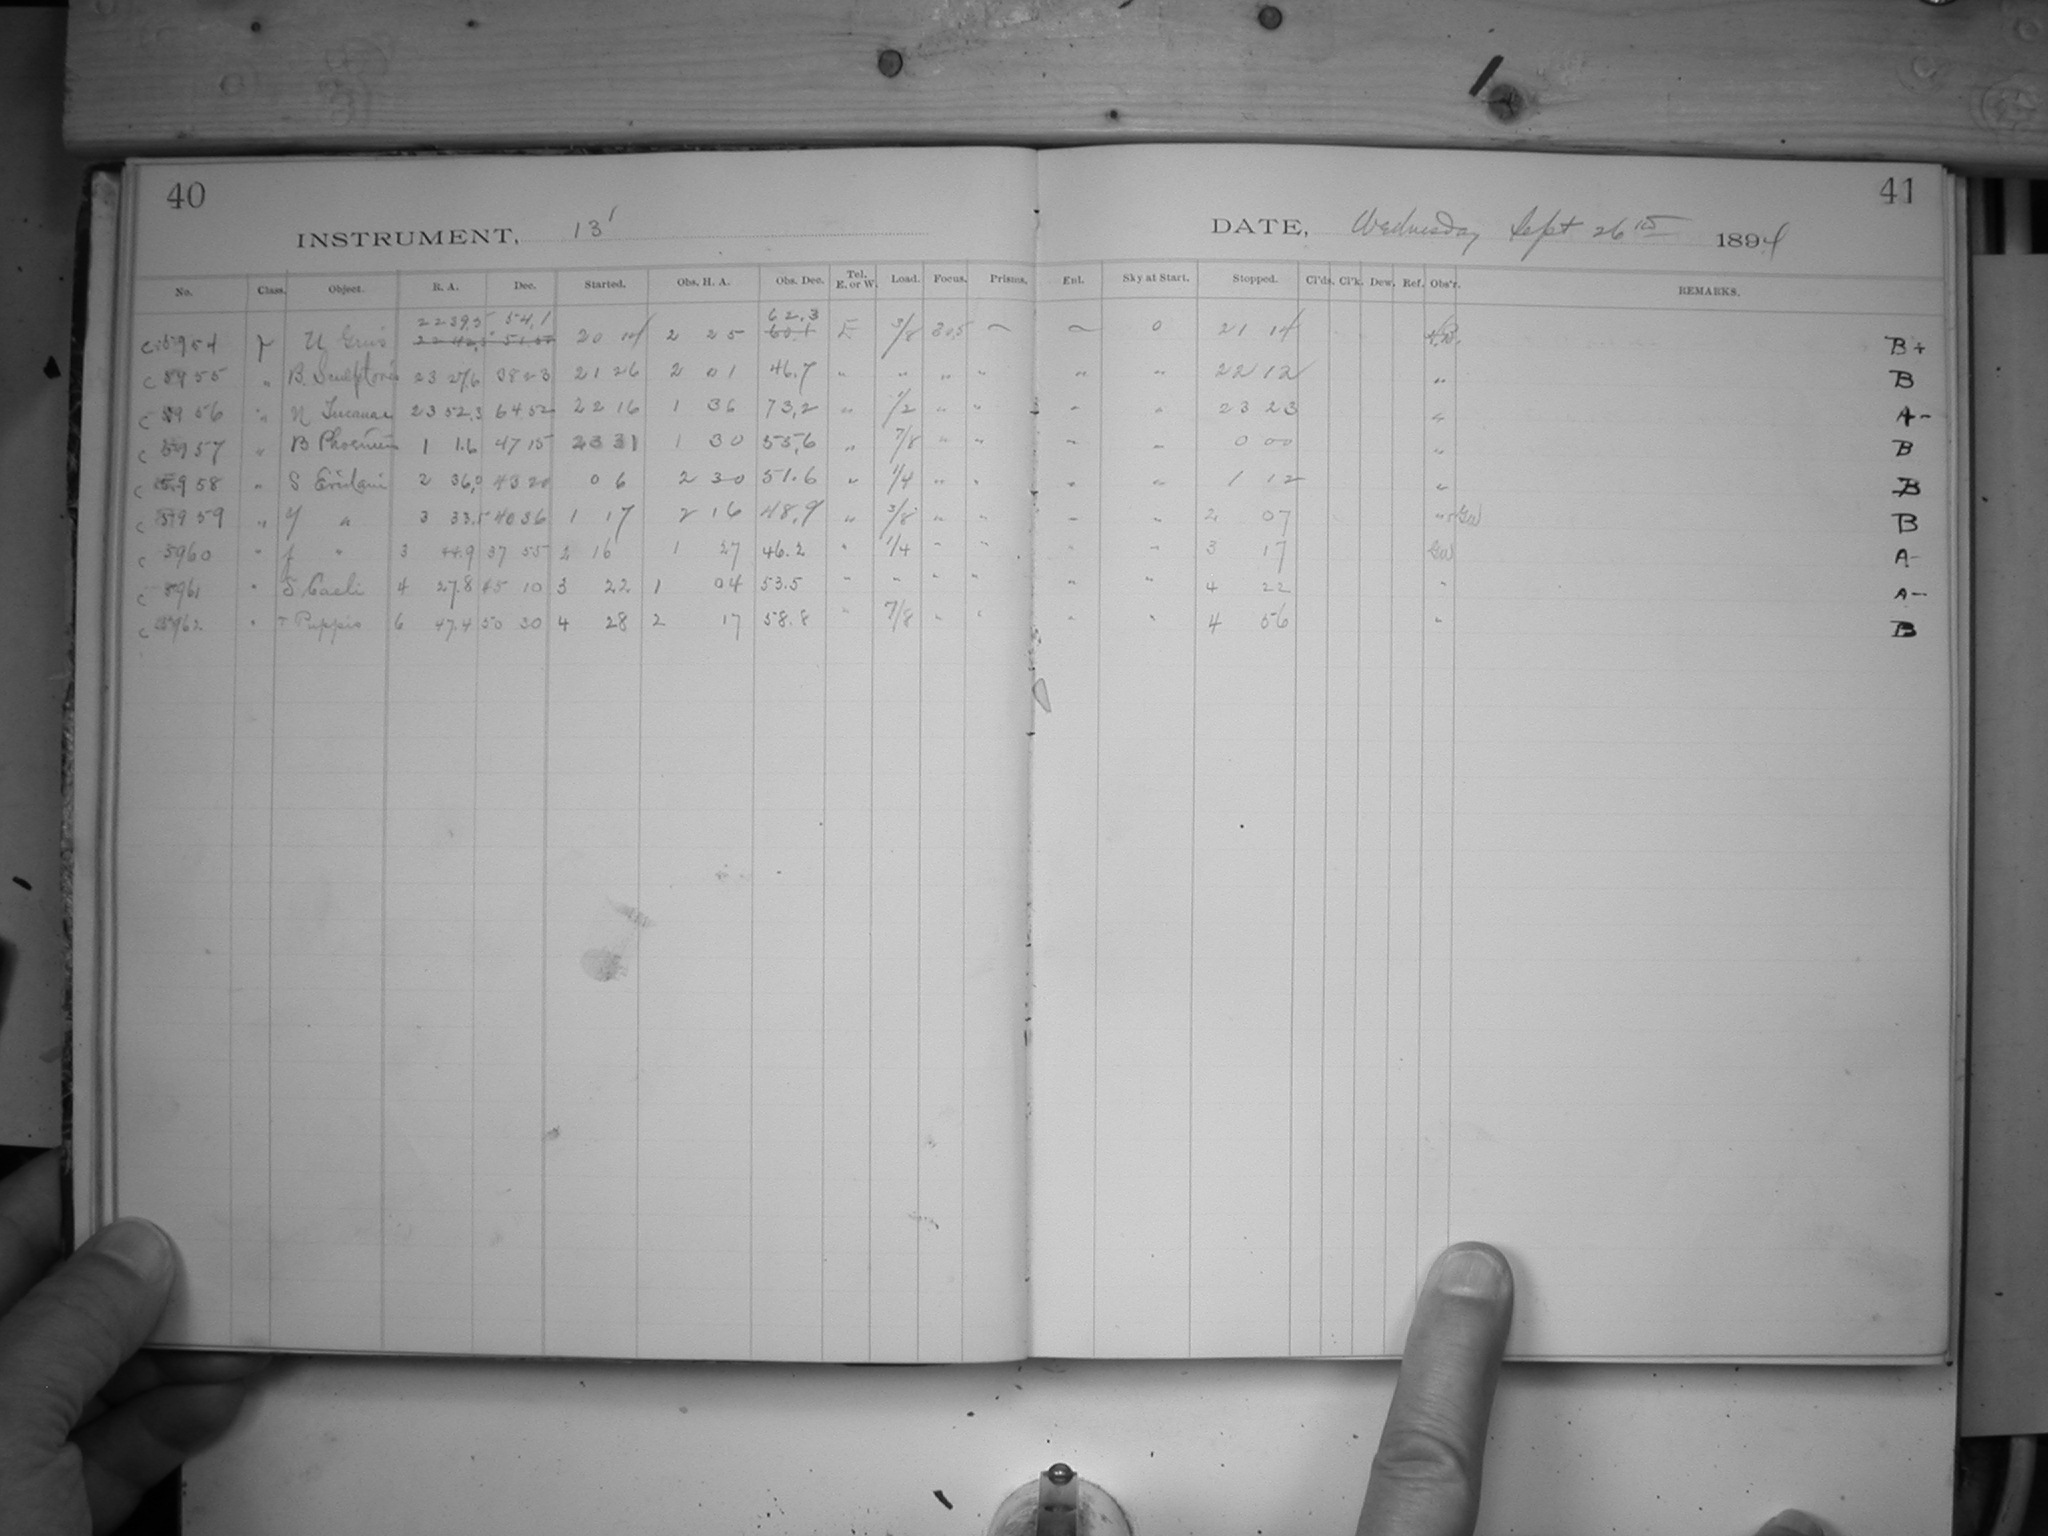 40
41
INSTRUMENT, 13'
DATE, Wednesday Sept 26th 1894
No. Class. Object. R. A. Dec. Started. Obs. H. A. Obs. Dec. Tel. E. or W. Load. Focus. Prisms. Enl. Sky at Start. Stopped. Cl'ds. Cl'k. Dew. Ref. Obs'r. REMARKS.
22 39,5 54,1 62.3
c 5954 Gruis 20 14 2 25 E 3/8 305 ~ ~ 0 21 14 B+
c 5955 " B. Sculptoris 23 27,6 38 23 21 26 2 01 46.7 " " " " " " 22 12 " B
c 5956 " N Tucanae 23 52.3 64 52 22 16 1 36 73,2 " 1/2 " " " " 23 23 " A-
c 5957 " B Phoenicis 1 1.6 47 15 23 31 1 30 55,6 " 7/8 " " " " 0 00 " B
c 5958 " S Eridani 2 36,0 43 20 0 6 2 30 51.6 " 1/4 " " " " 1 12 " B
c 5959 " y " 3 33.5 40 36 1 17 2 16 48,9 " 3/8 " " " " 2 07 " B
c 5960 " f " 3 44.9 37 55 2 16 1 27 46.2 " 1/4 " " " " 3 17 A-
c 5961 " S Caeli 4 27.8 45 10 3 22 1 04 53.5 " " " " " " 4 22 " A-
c 5962 " T Puppis 6 47.4 50 30 4 28 2 17 58.8 " 7/8 " " " " 4 56 " B